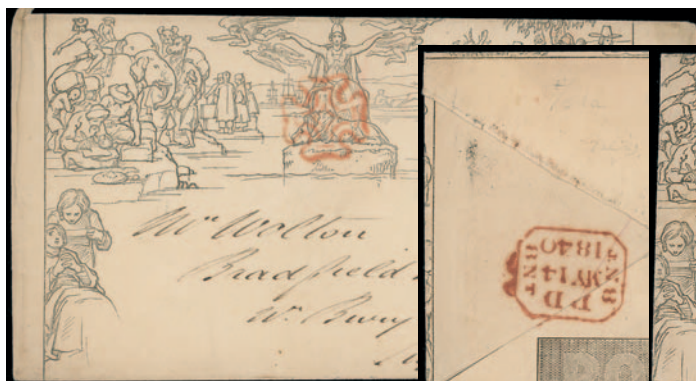 Mr Wolton
Bradfield
Bury
PD
MY 14
1840